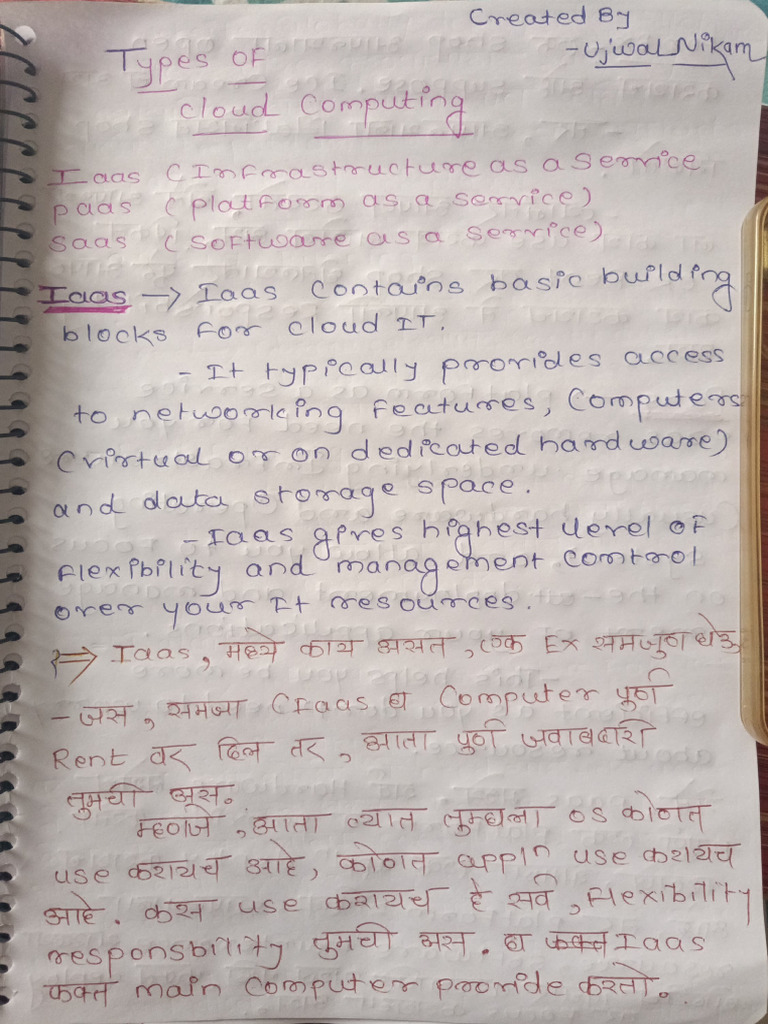 Created By
- Ujwal Nikam
Types OF
Cloud Computing
Iaas (Infrastructure as a Service
paas (platform as a service)
saas (software as a service)
Iaas → Iaas contains basic building
blocks for cloud IT.
- It typically provides access
to networking features, Computers
(virtual or on dedicated hardware)
and data storage space.
- Iaas gives highest level of
flexibility and management control
over your It resources.
⇒ Iaas, मध्ये काय असत, एक Ex समजुण घेऊ
- जस, समजा (Iaas हा Computer पुर्ण
Rent वर दिल तर, आता पुर्ण जवाबदारी
तुमची असं.
म्हणजे, आता त्यात तुम्हाला os कोणत
use करायच आहे, कोणत appln use करायच
आहे. कस use करायच हे सर्व, Flexibility
responsbility तुमची अस. हा फक्त Iaas
फक्त main computer provide करतो.